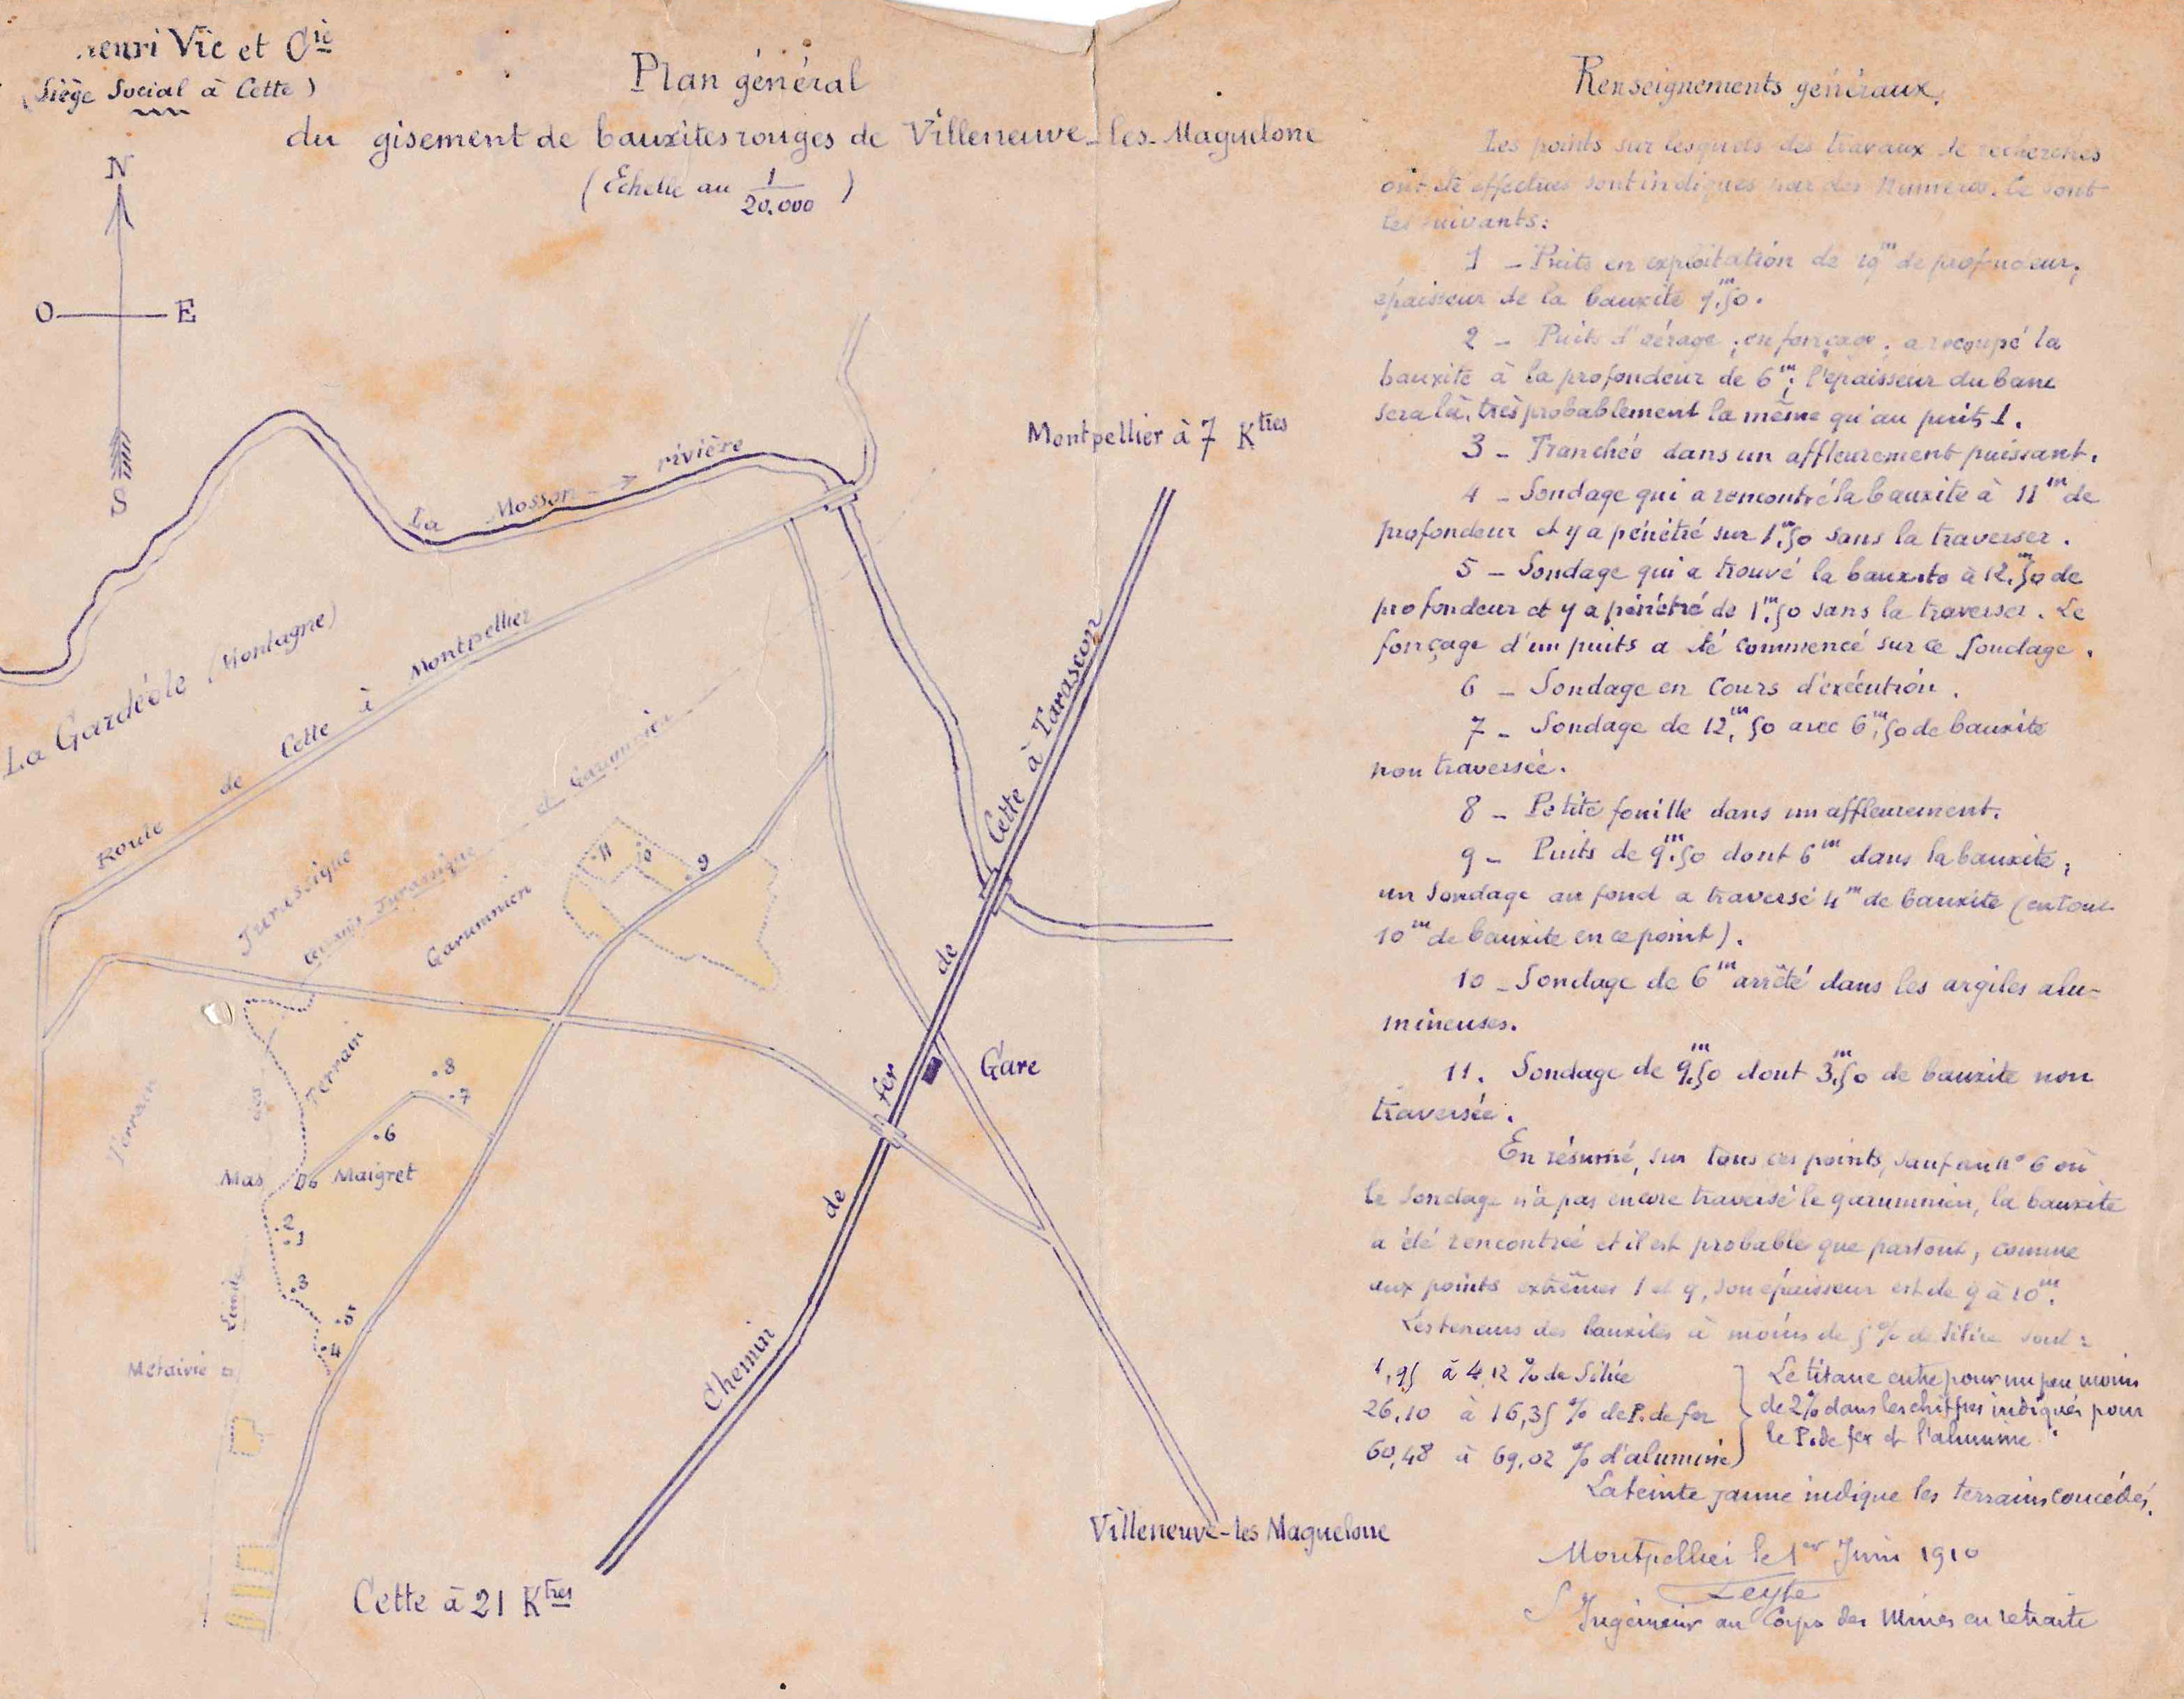 Henri Vic et Cie
(Siège Social à Cette)
Plan général
du gisement de bauxites rouges de Villeneuve-les-Maguelone
(Echelle au 1/20.000)
N
O E
S
La Mosson rivière
Montpellier à 7 Ktres
La Gardéole (Montagne)
Route de Cette à Montpellier
Chemin de fer de Cette à Tarascon
Jurassique
terrains Jurassique et Garumnien
Garumnien
11
10
9
Terrain
Terrain
des
Limite
8
7
6
Mas Maigret
2
1
3
5
4
Métairie
Gare
Villeneuve-les Maguelone
Cette à 21 Ktres
Renseignements généraux.
Les points sur lesquels des travaux de recherches
ont été effectués sont indiqués par des numéros. Ce sont
les suivants:
1 - Puits en exploitation de 19m de profondeur;
épaisseur de la bauxite 9m,50.
2 - Puits d'aérage, en fonçage, a recoupé la
bauxite à la profondeur de 6m; l'épaisseur du banc
sera là, très probablement la même qu'au puits 1.
3 - Tranchée dans un affleurement puissant.
4 - Sondage qui a rencontré la bauxite à 11m de
profondeur et y a pénétré sur 1m,50 sans la traverser.
5 - Sondage qui a trouvé la bauxite à 12m,50 de
profondeur et y a pénétré de 1m,50 sans la traverser. Le
fonçage d'un puits a été commencé sur ce sondage.
6 - Sondage en cours d'exécution.
7 - Sondage de 12m,50 avec 6m,50 de bauxite
non traversée.
8 - Petite fouille dans un affleurement.
9 - Puits de 9m,50 dont 6m dans la bauxite;
un sondage au fond a traversé 4m de bauxite (en tout
10m de bauxite en ce point).
10 - Sondage de 6m arrêté dans les argiles alu-
mineuses.
11. Sondage de 9m,50 dont 3m,50 de bauxite non
traversée.
En résumé, sur tous ces points, sauf au n° 6 où
le sondage n'a pas encore traversé le garumnien, la bauxite
a été rencontrée et il est probable que partout, comme
aux points extrêmes 1 et 9, son épaisseur est de 9 à 10m.
Les teneurs des bauxites à moins de 5% de silice sont:
1,95 à 4,12 % de Silice
26,10 à 16,35 % de P. de fer
60,48 à 69,02 % d'alumine
Le titane entre pour un peu moins
de 2% dans les chiffres indiqués pour
le P. de fer et l'alumine.
La teinte jaune indique les terrains concédés.
Montpellier le 1er Juin 1910
Ingénieur au Corps des Mines en retraite